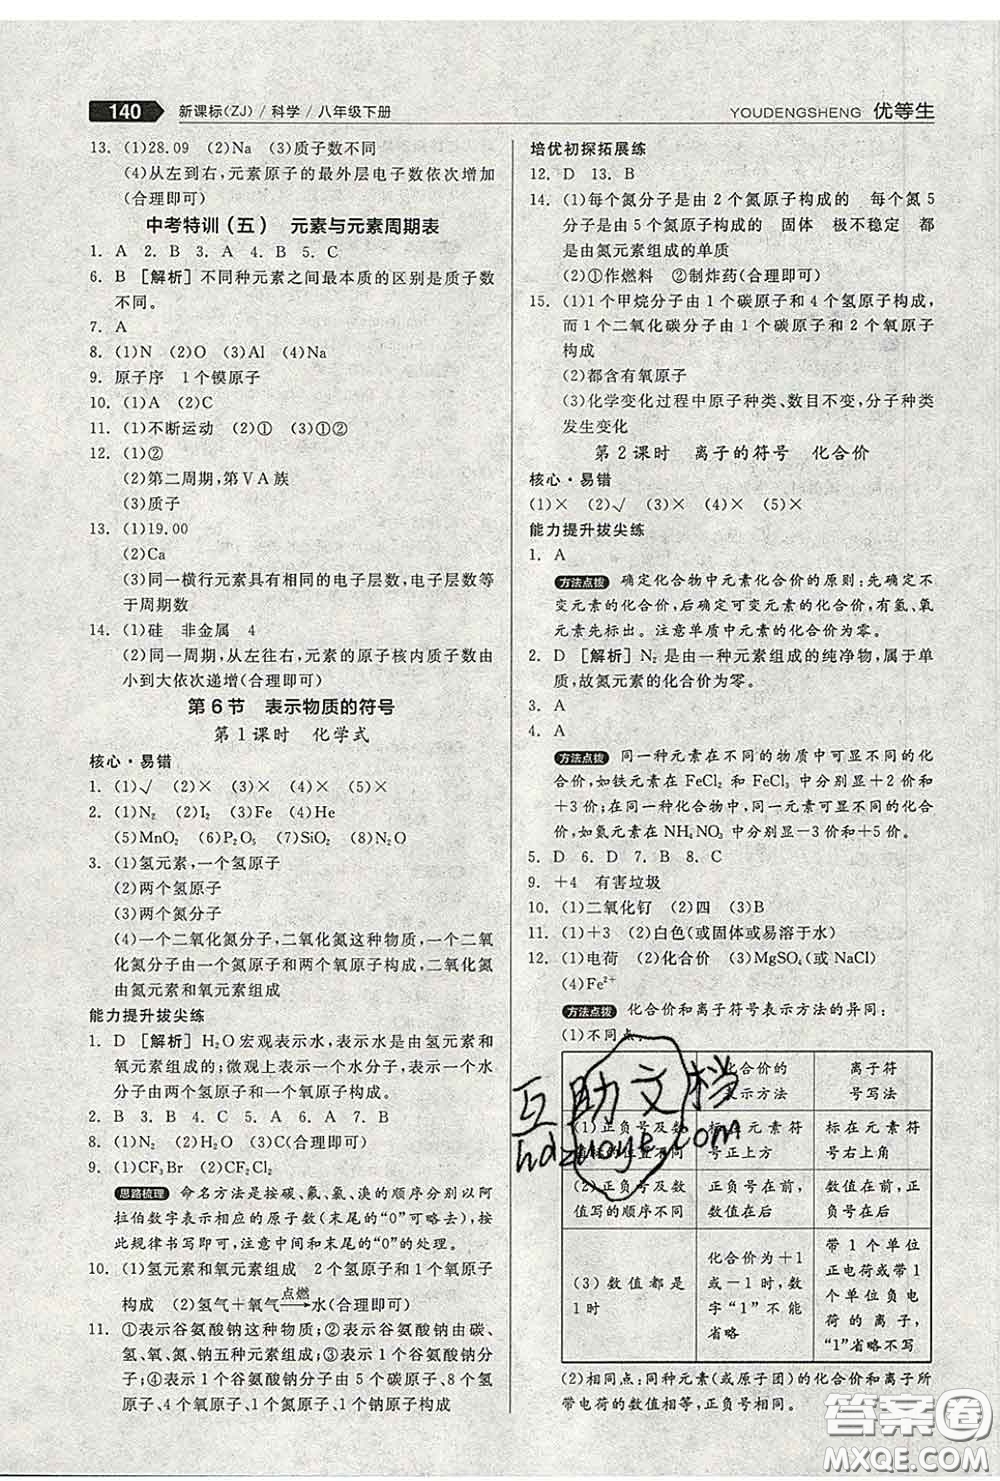 140 新课标(ZJ)/科学/八年级下册
YOUDENGSHENG 优等生
13. (1)28.09 (2)Na (3)质子数不同
(4)从左到右,元素原子的最外层电子数依次增加
(合理即可)
中考特训(五) 元素与元素周期表
1. A 2. B 3. A 4. B 5. C
6. B [解析]不同种元素之间最本质的区别是质子数
不同。
7. A
8. (1)N (2)O (3)Al (4)Na
9. 原子序 1个镆原子
10. (1)A (2)C
11. (1)不断运动 (2)① (3)①②
12. (1)②
(2)第二周期,第ⅤA族
(3)质子
13. (1)19.00
(2)Ca
(3)同一横行元素具有相同的电子层数,电子层数等
于周期数
14. (1)硅 非金属 4
(2)同一周期,从左往右,元素的原子核内质子数由
小到大依次递增(合理即可)
第6节 表示物质的符号
第1课时 化学式
核心·易错
1. (1)√ (2)× (3)× (4)× (5)×
2. (1)N₂ (2)I₂ (3)Fe (4)He
(5)MnO₂ (6)P₂O₅ (7)SiO₂ (8)NO₂
3. (1)氢元素,一个氢原子
(2)两个氢原子
(3)两个氮分子
(4)一个二氧化氮分子,二氧化氮这种物质,一个二氧
化氮分子由一个氮原子和两个氧原子构成,二氧化氮
由氮元素和氧元素组成
能力提升拔尖练
1. D [解析]H₂O宏观表示水,表示水是由氢元素和
氧元素组成的;微观上表示一个水分子,表示一个水分
子由两个氢原子和一个氧原子构成。
2. B 3. B 4. D 5. A 6. A 7. B
8. (1)N₂ (2)H₂O (3)C(合理即可)
9. (1)CF₃Br (2)CF₂Cl₂
思路梳理 命名方法是按碳、氟、氯、溴的顺序分别以阿
拉伯数字表示相应的原子数(末尾的“0”可略去)。按
此规律书写即可,注意中间和末尾的“0”的处理。
10. (1)氢元素和氧元素组成 2个氢原子和1个氧原子
构成 (2)氢气+氧气—点燃→水(合理即可)
11. ①表示谷氨酸钠这种物质;②表示谷氨酸钠由碳、
氢、氧、氮、钠五种元素组成;③表示1个谷氨酸钠分
子;④表示1个谷氨酸钠分子由5个碳原子、8个氢原
子、4个氧原子、1个氮原子、1个钠原子构成
培优初探拓展练
12. D 13. B
14. (1)每个氮分子是由2个氮原子构成的 每个氮5
分子是由5个氮原子构成的 固体 极不稳定 都
是由氮元素组成的单质
(2)①作燃料 ②制炸药(合理即可)
15. (1)1个甲烷分子由1个碳原子和4个氢原子构成,
而1个二氧化碳分子由1个碳原子和2个氧原子
构成
(2)都含有碳原子
(3)化学变化过程中原子种类、数目不变,分子种类
发生变化
第2课时 离子的符号 化合价
核心·易错
(1)× (2)√ (3)× (4)× (5)×
能力提升拔尖练
1. A
方法点拨 确定化合物中元素化合价的原则:先确定不
变元素的化合价,后确定可变元素的化合价,有氢、氧
元素先标出。注意单质中元素的化合价为零。
2. D [解析]N₂是由一种元素组成的纯净物,属于单
质,故氮元素的化合价为零。
3. A
4. A
方法点拨 同一种元素在不同的物质中可显不同的化
合价,如铁元素在FeCl₂和FeCl₃中分别显+2价和
+3价;在同一种化合物中元素也可显不同的化合
价,如氮元素在NH₄NO₃中分别显-3价和+5价。
5. D 6. D 7. B 8. C
9. +4 有害垃圾
10. (1)二氧化钌 (2)四 (3)B
11. (1)+3 (2)白色(或固体或易溶于水)
12. (1)电荷 (2)化合价 (3)MgSO₄(或NaCl)
(4)Fe²⁺
方法点拨 化合价和离子符号表示方法的异同:
(1)不同点:
化合价的
表示方法
离子符
号写法
(1)正负号及数
值标的位置不同
标在元素符
号正上方
标在元素符
号右上角
(2)正负号及数
值写的顺序不同
正负号在前,
数值在后
数值在前,正
负号在后
(3)数值都是
1时
化合价为+1
或-1时,数
字“1”不能
省略
带1个单位
正电荷或带1
个单位负电
荷的离子,
“1”省略不写
(2)相同点:同种元素(或原子团)的化合价和离子所
带电荷的数值相等,正负号相同。
互助文档
hdzuoye.com
答案圈
MXQE.COM